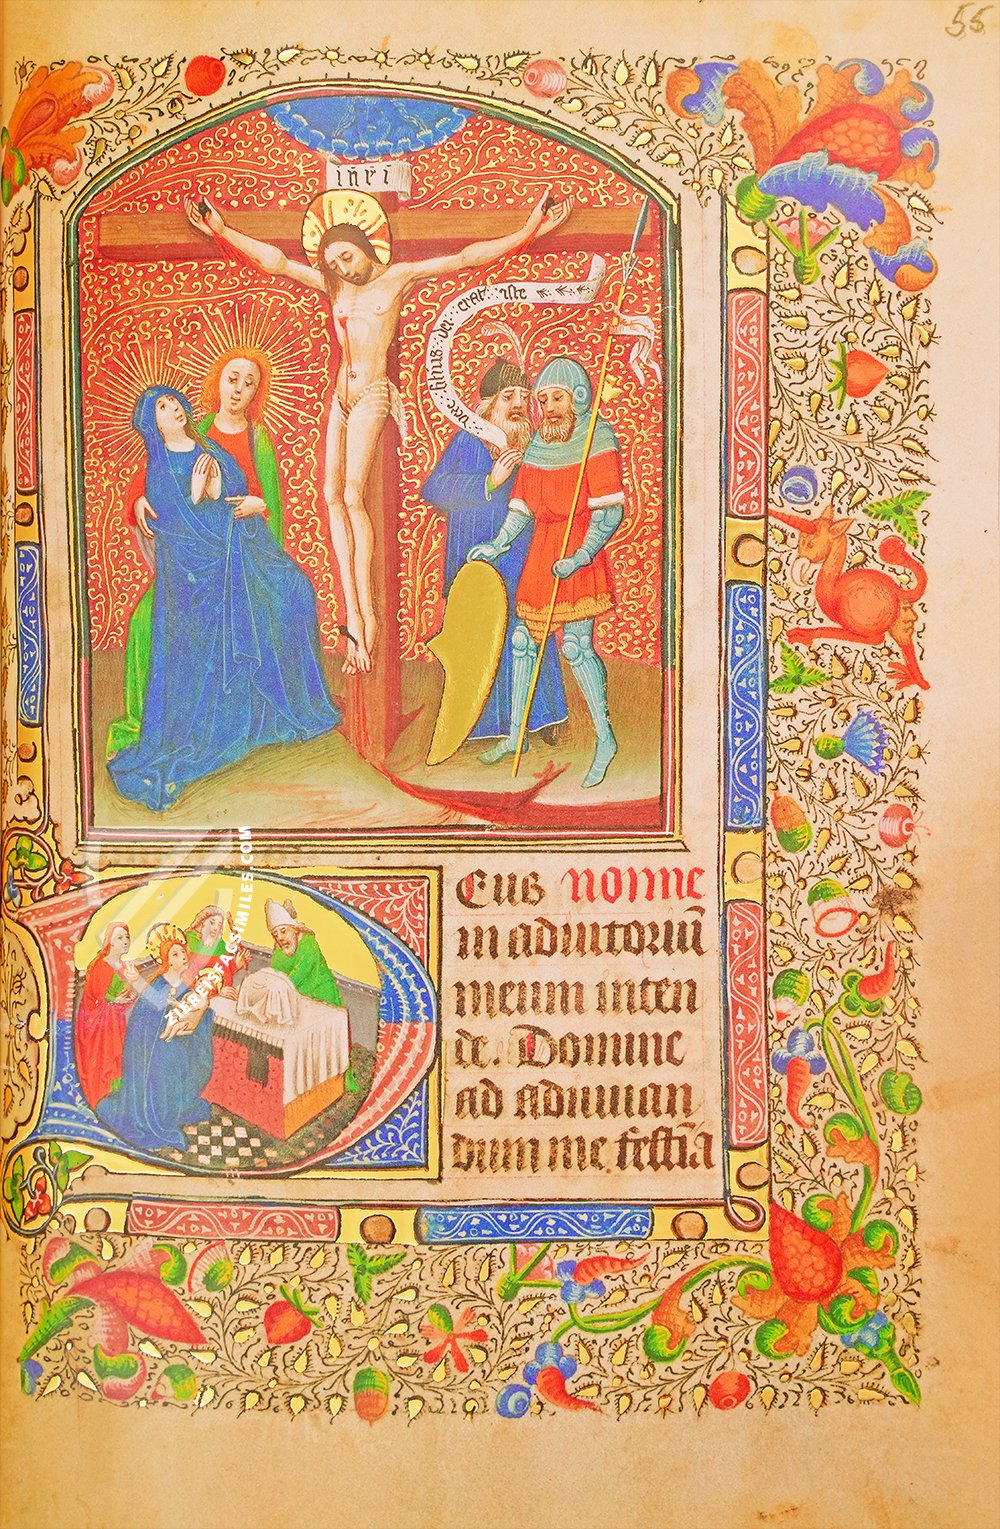 55
inri
vere filius dei erat iste
Eus nonne
in adiutoriū
meum inten
de. Domine
ad adiuuan
dum me festīa
FACSIMILES.COM